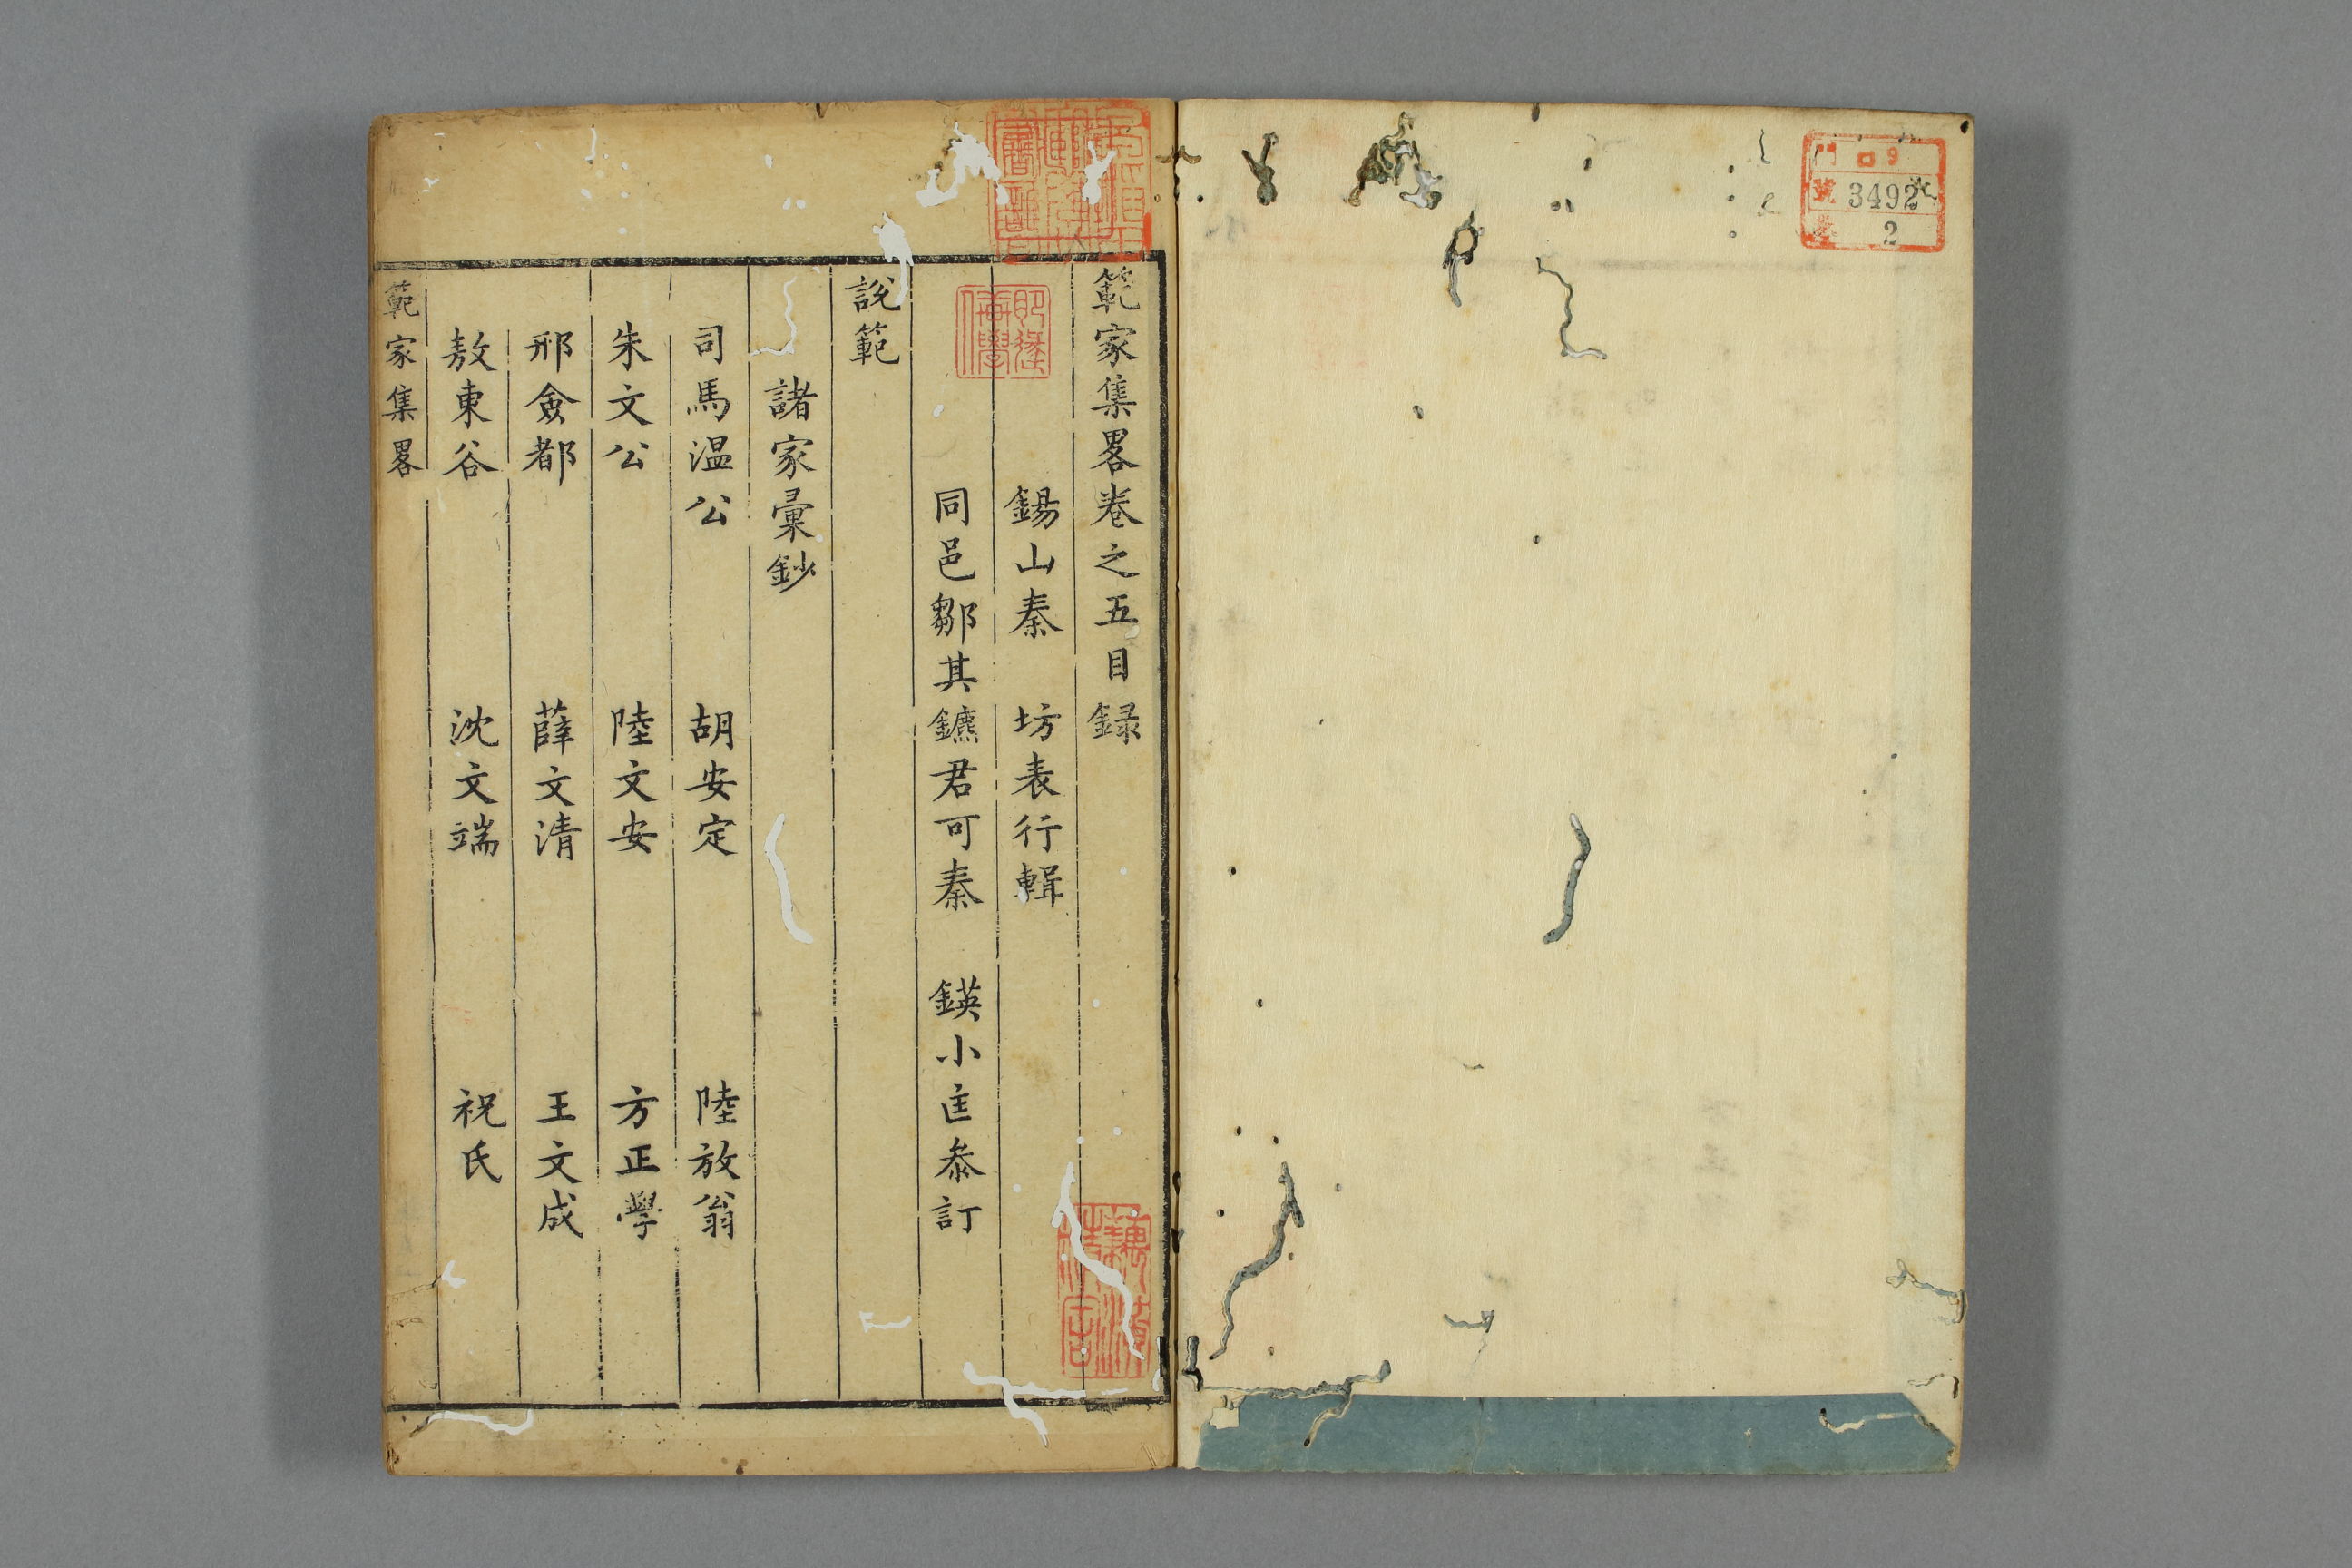 門 ロ 9
號 3492
卷 2
範家集畧卷之五目録
錫山秦　坊表行輯
同邑鄒其鑣君可秦　鍈小匡叅訂
說範
諸家彙鈔
司馬温公　胡安定　陸放翁
朱文公　陸文安　方正學
邢僉都　薛文清　王文成
敖東谷　沈文端　祝氏
範家集畧